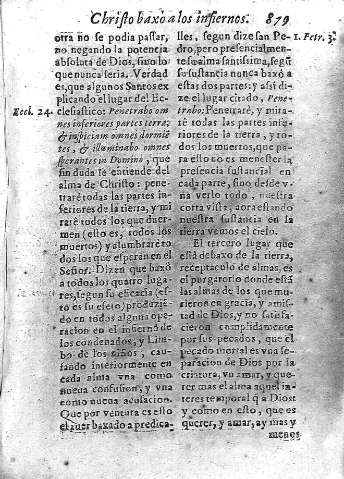 Christo baxó a los infiernos. 879
otra no se podia passar,
no negando la potencia
absoluta de Dios, sino lo
que nunca seria. Verdad
es, que algunos Santos ex
plicando el lugar del Ec
Eccl. 24.
clesiastico: Penetrabo om
nes inferiores partes terræ;
& inspiciam omnes dormiē
tes, & illuminabo omnes
sperantes in Domino, que
sin duda se entiende del
alma de Christo: pene
traré todas las partes in
feriores de la tierra, y mi
raré todos los que duer
men (esto es, todos los
muertos) y alumbraré to
dos los que esperan en el
Señor. Dizen que baxó
a todos los quatro luga
res, segun su eficacia (esto
es su efeto) produzië
do en todos alguna ope-
racion en el infierno de
los condenados, y Lim
bo de los niños, cau-
sando interiormente en
cada alma vna como
nueva confusion, y vna
como nueva acusacion.
Que por ventura es esto
el auer baxado a predica-
lles, segun dize san Pe
1. Petr. 3.
dro, pero presencialmen-
te su alma santissima, segū
su sustancia no baxò a
estas dos partes: y assi di-
ze el lugar citado, Pene-
trabo: Penetraré, y mira-
ré todas las partes in-
feriores de la tierra, y to-
dos los muertos, que pa
ra esto no es menester la
presencia sustancial en
cada parte, sino desde v-
na verlo todo, nuestra
corta vista, aora estando
nuestra sustancia en la
tierra vemos el cielo.
El tercero lugar que
está debaxo de la tierra,
receptaculo de almas, es
el purgatorio donde estā
las almas de los que mu-
rieron en gracia, y amis-
tad de Dios, y no satisfa-
cieron complidamente
por sus pecados, que el
pecado mortal es vna se-
paracion de Dios por la
criatura, vn amar, y que-
rer mas el alma aquel in-
teres temporal q̃ a Dios:
y como en esto, que es
querer, y amar, ay mas y
menos